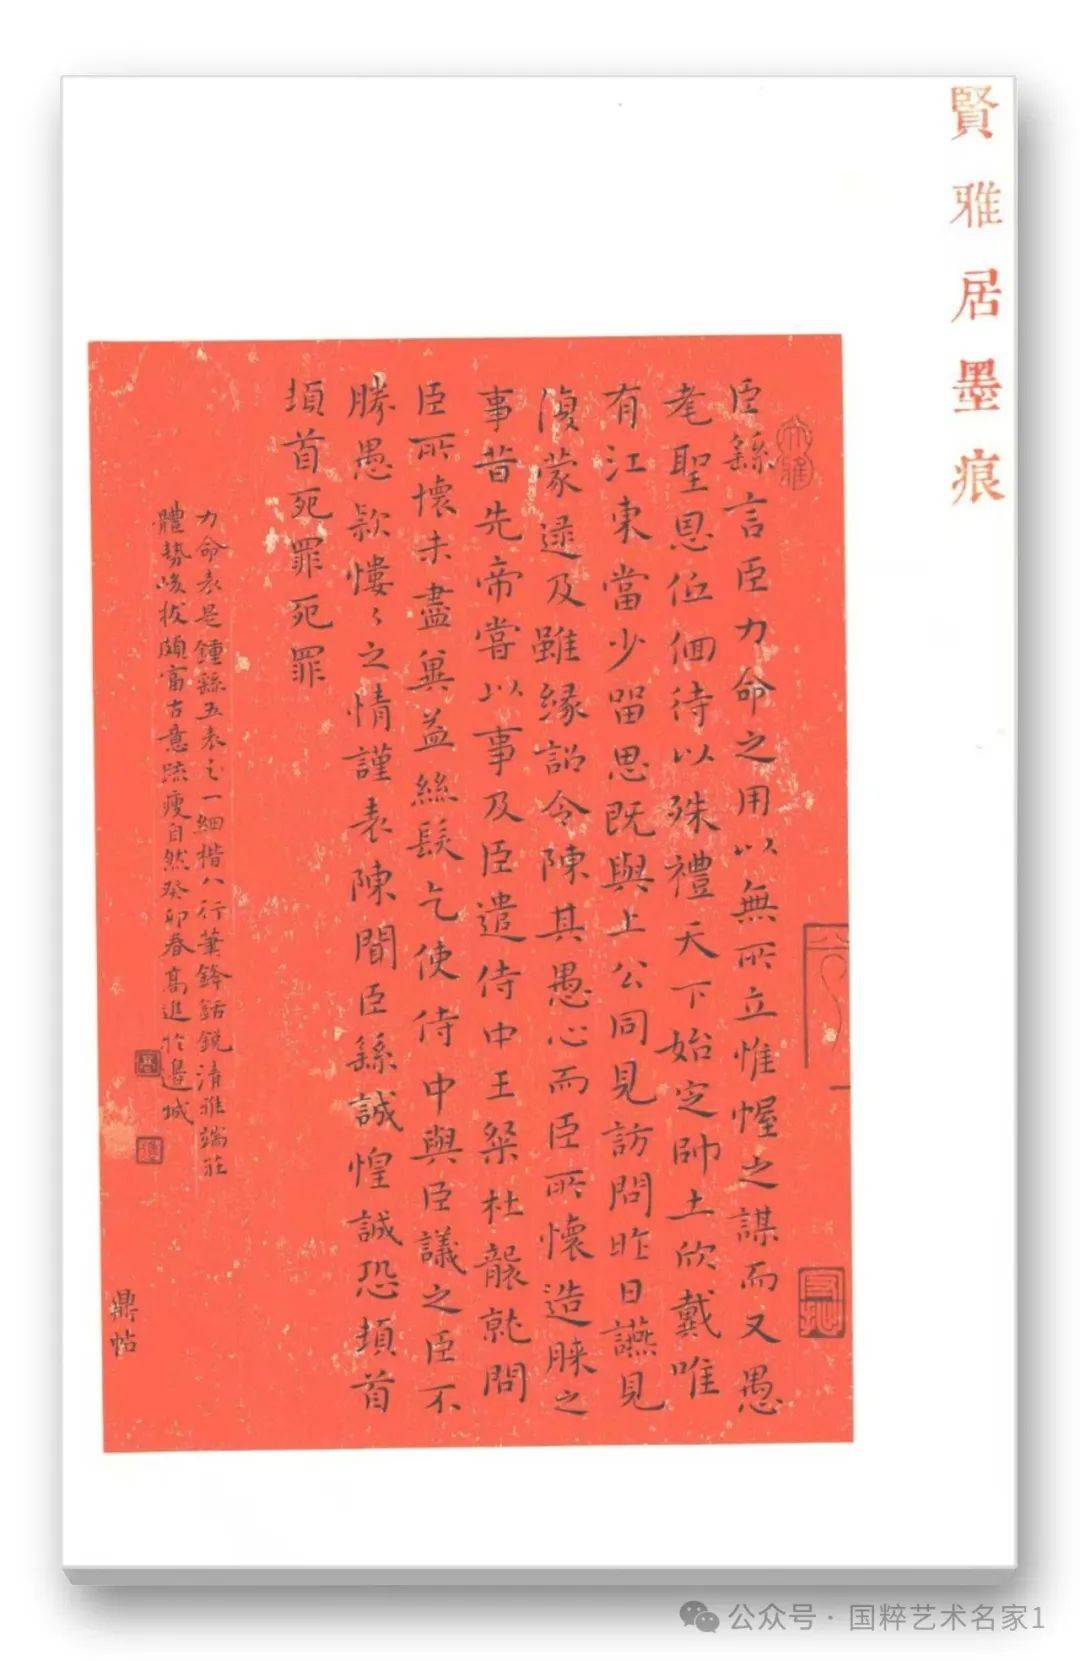 賢雅居墨痕
臣繇言臣力命之用以無所立惟幄之謀而又愚
耄聖恩伍佪待以殊禮天下始定帥土欣戴唯
有江東當少留思既與上公同見訪問昨日讌見
復蒙逮及雖緣詔令陳其愚心而臣所懷造膝之
事昔先帝嘗以事及臣遣侍中王粲杜襲就問
臣所懷未盡冀益絲髮乞使侍中與臣議之臣不
勝愚款慺〻之情謹表陳聞臣繇誠惶誠恐頓首
頓首死罪死罪
力命表是鍾繇五表之一細楷八行筆鋒銛銳清雅端莊
體勢峻拔頗富古意疏瘦自然癸卯春高進於邊城
鼎帖
公众号 · 国粹艺术名家1